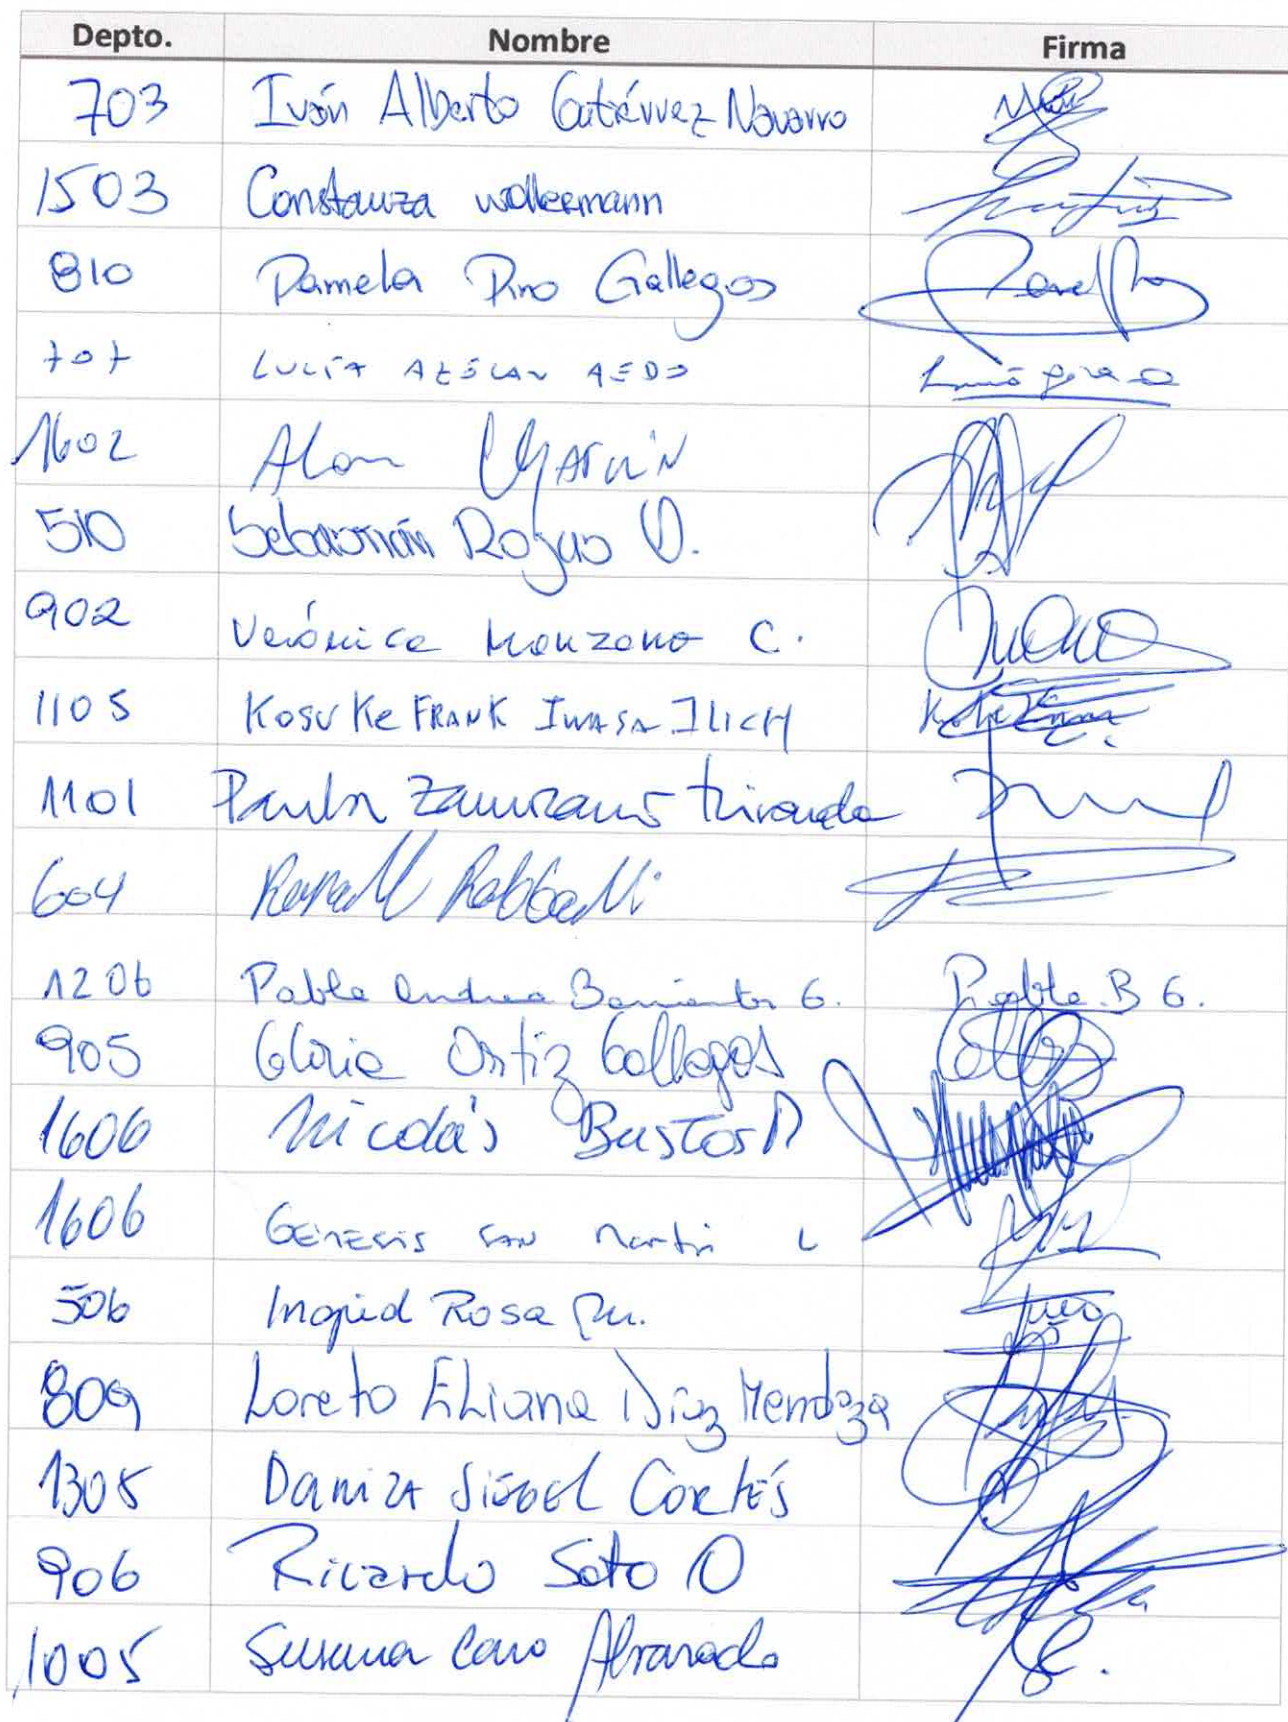 Depto. Nombre Firma
703 Iván Alberto Gutiérrez Navarro
1503 Constanza wolkermann
810 Pamela Pino Gallegos
707 LUCÍA AEDO
1602 Alan Marvin
510 Sebastián Rojas V.
902 Verónica Manzano C.
1105 KosuKe FRANK IWASA ILICH
1101 Paula Zamorano Miranda
604
1206 Pabla Andrea Barrientos G. Pabla B G.
905 Gloria Ortiz Gallegos
1606 Nicolás Bustos
1606 Génesis San Martín L
506 Ingrid Rosa
809 Loreto Eliana Díaz Mendoza
1305 Daniza Siegel Cortés
906 Ricardo Soto O
1005 Susana Caro Alvarado